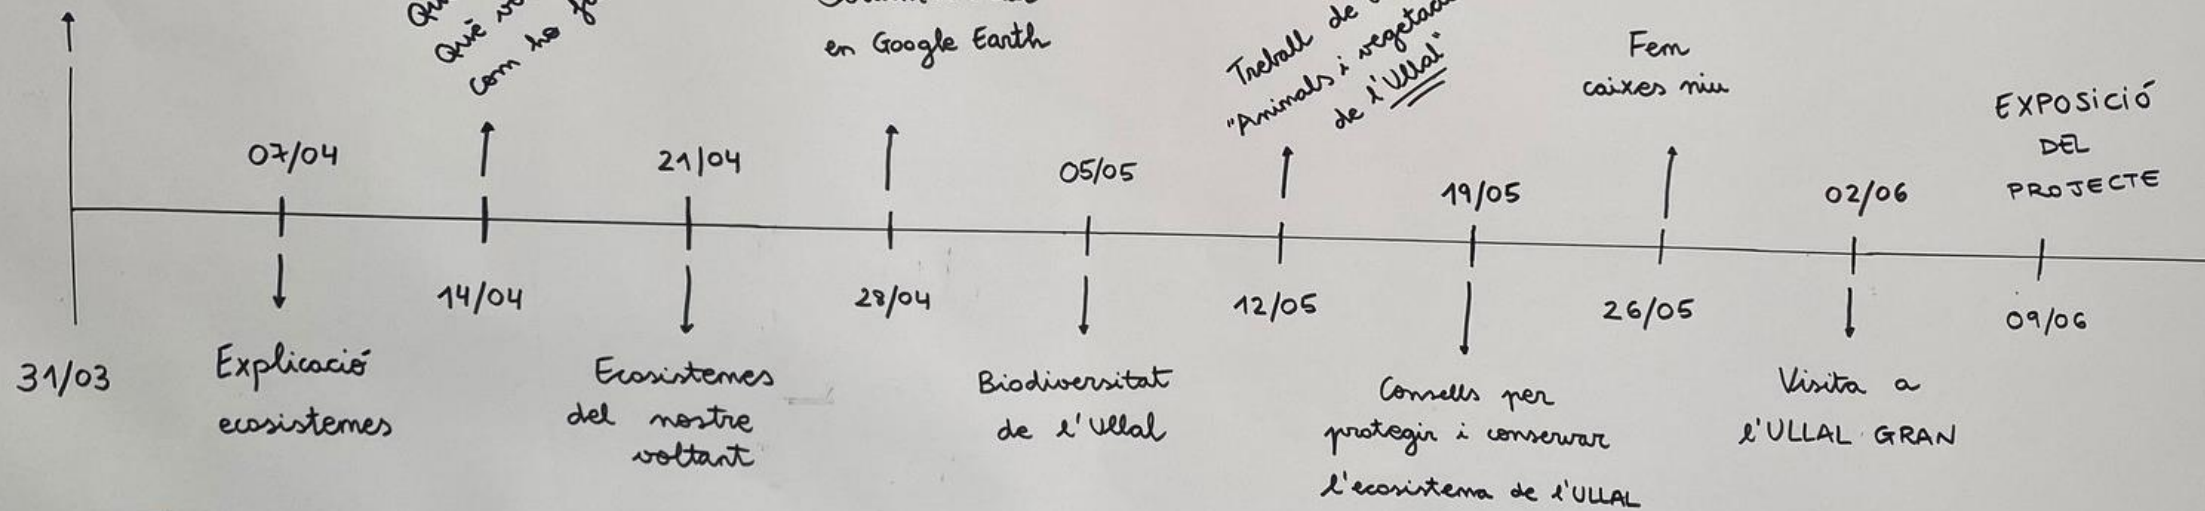 Què
com ho
en Google Earth
Treball de
"Animals i
de l'Ullal"
Fem
caixes niu
EXPOSICIÓ
DEL
PROJECTE
07/04
21/04
05/05
19/05
02/06
31/03
14/04
28/04
12/05
26/05
09/06
Explicació
ecosistemes
Ecosistemes
del nostre
voltant
Biodiversitat
de l'Ullal
Consells per
protegir i conservar
l'ecosistema de l'ULLAL
Visita a
l'ULLAL GRAN